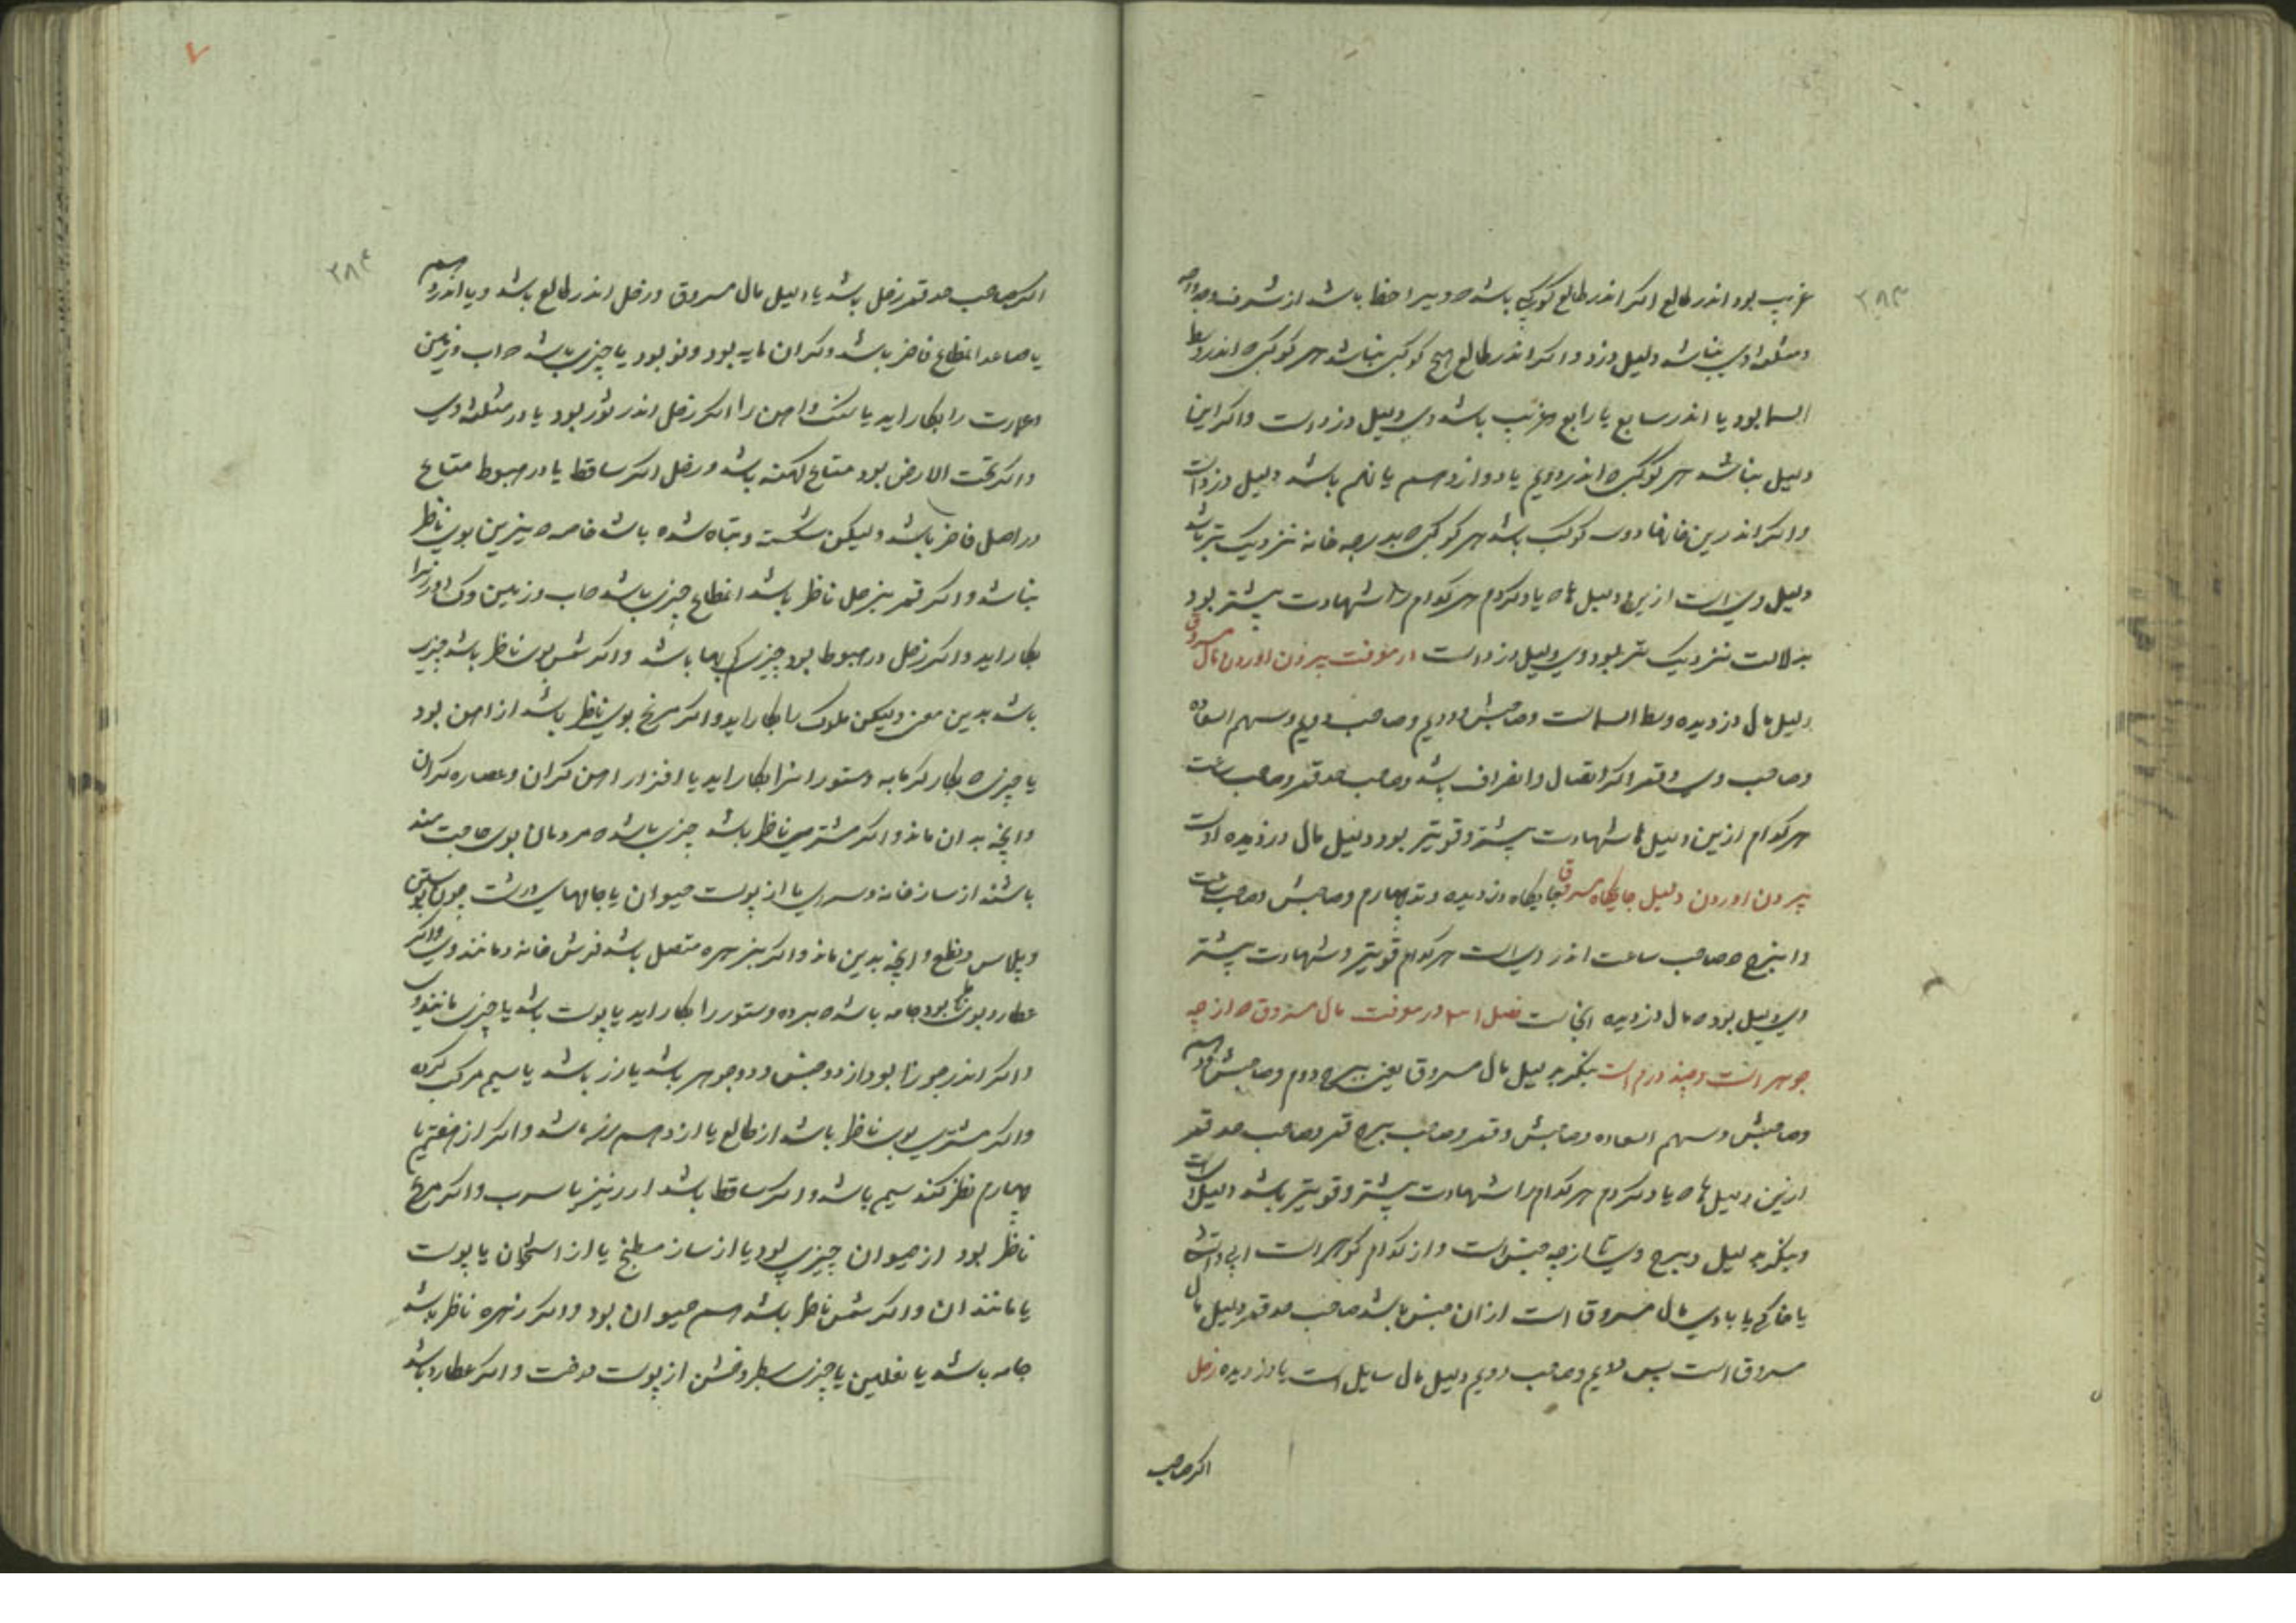 ۲۸۳
غریب بود اندر طالع اگر اندر طالع کوکبی باشد که ویرا حظ باشد از شرف و
و مثلثه وی نباشد دلیل دزد و اگر اندر طالع هیچ کوکبی نباشد هر کوکبی که اندر وسط
السما بود یا اندر سابع یا رابع و غریب باشد وی دلیل دزد است و اگر این
دلیل نباشد هر کوکبی که اندر دویم یا دوازدهم یا نهم باشد دلیل دزد است
و اگر اندرین خانها دو سه کوکب باشد هر کوکبی که بدرجه خانه نزدیک تر باشد
دلیل وی است ازین دلیل ها که یاد کردم هر کدام را شهادت بیشتر بود
بدلالت نزدیک تر بود وی دلیل دزد است در معرفت بیرون اوردن مال مسروق
دلیل مال دزدیده وسط السماست و صاحبش و دویم و صاحب دویم و سهم السعاده
و صاحب وی و قمر اگر اتصال و انصراف باشد و صاحب حد قمر و صاحب ساعت
هر کدام ازین دلیل ها شهادت بیشتر و قویتر بود دلیل مال دزدیده اوست
بیرون اوردن دلیل جایگاه مسروق جایگاه دزدیده وتد چهارم و صاحبش و صاحب ساعت
و ان برج که صاحب ساعت اندر وی است هر کدام قویتر و شهادت بیشتر
وی دلیل بود که مال دزدیده انجاست فصل در معرفت مال مسروق که از چه
جوهر است و چند درم است بنگر بدلیل مال مسروق یعنی ببرج دوم و صاحبش و دهم
و صاحبش و سهم السعاده و صاحبش و قمر و صاحب برج قمر و صاحب حد قمر
ازین دلیل ها که یاد کردم هر کدام را شهادت بیشتر و قویتر باشد دلیل است
و بنگر بدلیل و ببرج وی تا از چه جنس است و از کدام گوهر است ابی و اتشی
یا خاکی یا بادی مال مسروق است از ان جنس باشد صاحب حد قمر دلیل مال
مسروق است پس دویم و صاحب دویم دلیل مال سایل است یا دزدیده زحل
اگر صاحب
۲۸۴
اگر صاحب حد قمر زحل باشد یا دلیل مال مسروق و زحل اندر طالع باشد و یا اندر دهم
یا صاعد انقطاع فاخر باشد و گران مایه بود و نو بود یا چیزی باشد که اب و زمین
و عمارت را بکار اید یا سنک و اهن را اگر زحل اندر ثور بود یا در مثلثه وی
و اگر تحت الارض بود متاع کهنه باشد و زحل اگر ساقط یا در هبوط متاع
در اصل فاخر باشد ولیکن شکسته و تباه شده باشد خاصه که نیرین بوی ناظر
نباشد و اگر قمر بزحل ناظر باشد چیزی باشد که اب و زمین و
بکار اید و اگر زحل در هبوط بود چیزی کم بها باشد و اگر شمس بوی ناظر باشد چیزی
باشد بدین معنی ولیکن ملوک را بکار اید و اگر مریخ بوی ناظر باشد از اهن بود
یا چیزی که بکار گرمابه و ستور انرا بکار اید یا افزار اهن گران و عصاره گران
و انچه به ان ماند و اگر مشتری ناظر باشد چیزی باشد که مردمان بوی حاجتمند
باشند از ساز خانه و سرای یا از پوست حیوان یا جامهای درشت چون پوستین
و پلاس و نطع و انچه بدین ماند و اگر بزهره متصل باشد فرش خانه و مانند وی و اگر
عطارد بوی ناظر بود جامه باشد که برده و ستور را بکار اید یا پوست باشد یا چیزی مانند وی
و اگر اندر جوزا بود از دو جنس و دو جوهر باشد یا زر باشد یا سیم مرکب کرده
و اگر مشتری بوی ناظر باشد از طالع یا از دهم زر باشد و اگر از هفتم یا
چهارم نظر کند سیم باشد و اگر ساقط باشد ارزیز یا سرب و اگر مریخ
ناظر بود از حیوان چیزی بود یا از ساز مطبخ یا از استخوان یا پوست
یا مانند ان و اگر شمس ناظر باشد هم حیوان بود و اگر زهره ناظر باشد
جامه باشد یا نعلین یا چیزی سطبر و خشن از پوست دوخت و اگر عطارد باشد